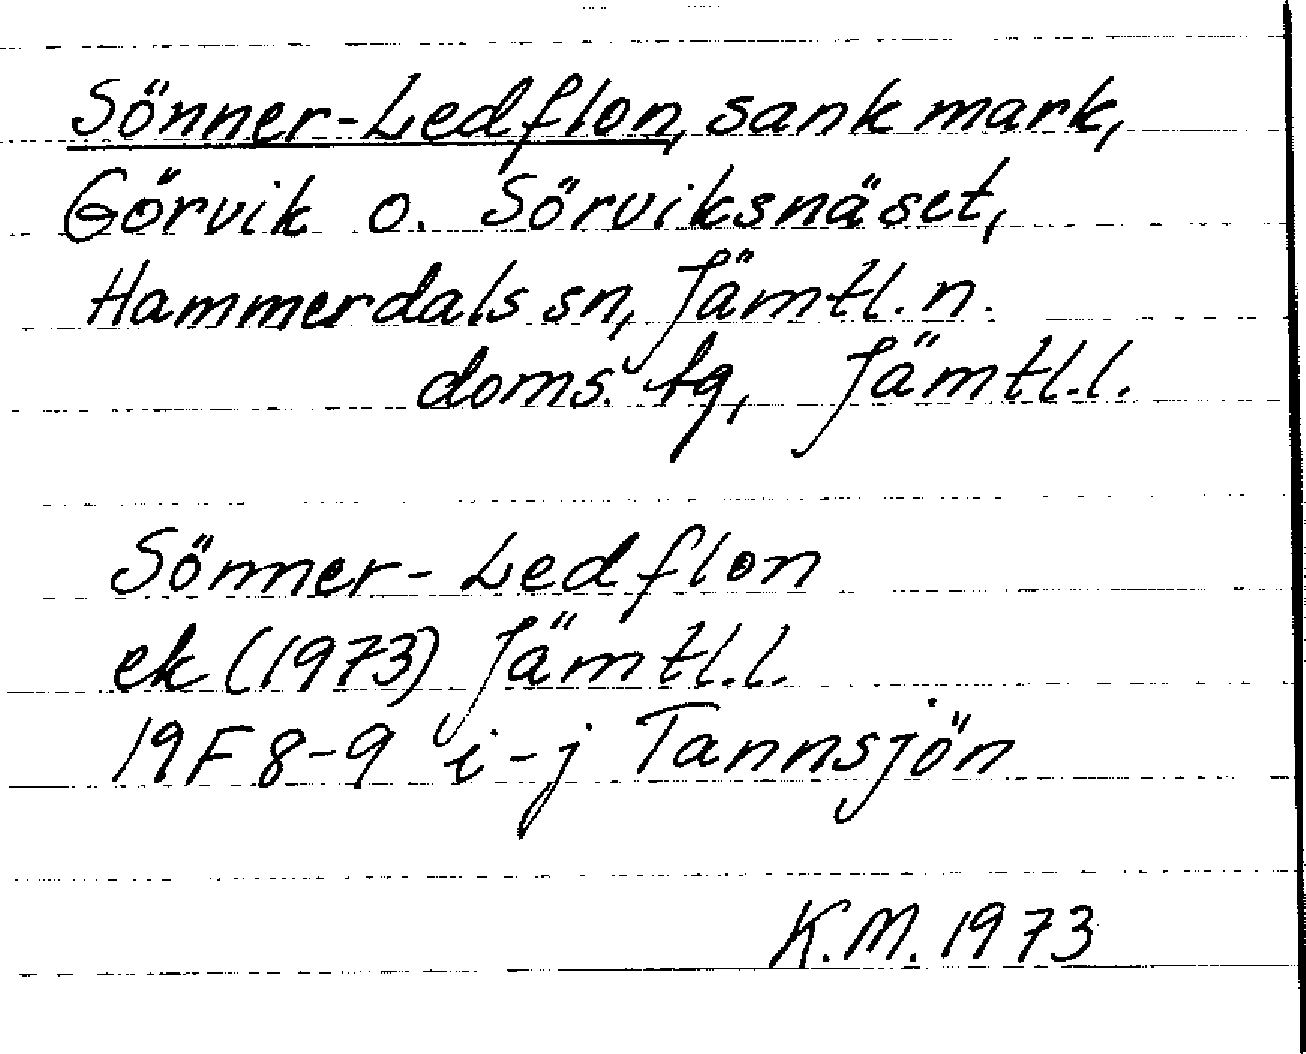 Sönner-Ledflon, sank mark,
Görvik o. Sörviksnäset,
Hammerdals sn, Jämtl. n.
doms. tg, Jämtl.l.
Sönner-Ledflon
ek (1973) Jämtl.l.
19F 8-9 i-j Tannsjön
K.M. 1973